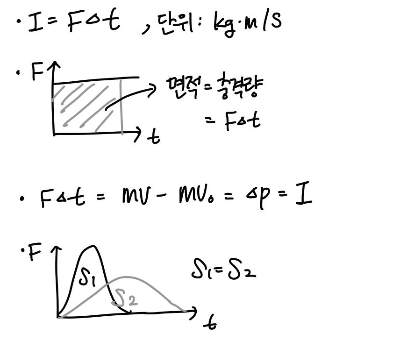 · I = F△t , 단위: kg·m/s
· F
면적 = 충격량
= F△t
t
· F△t = mv - mv₀ = △p = I
· F
S₁
S₂
S₁ = S₂
t